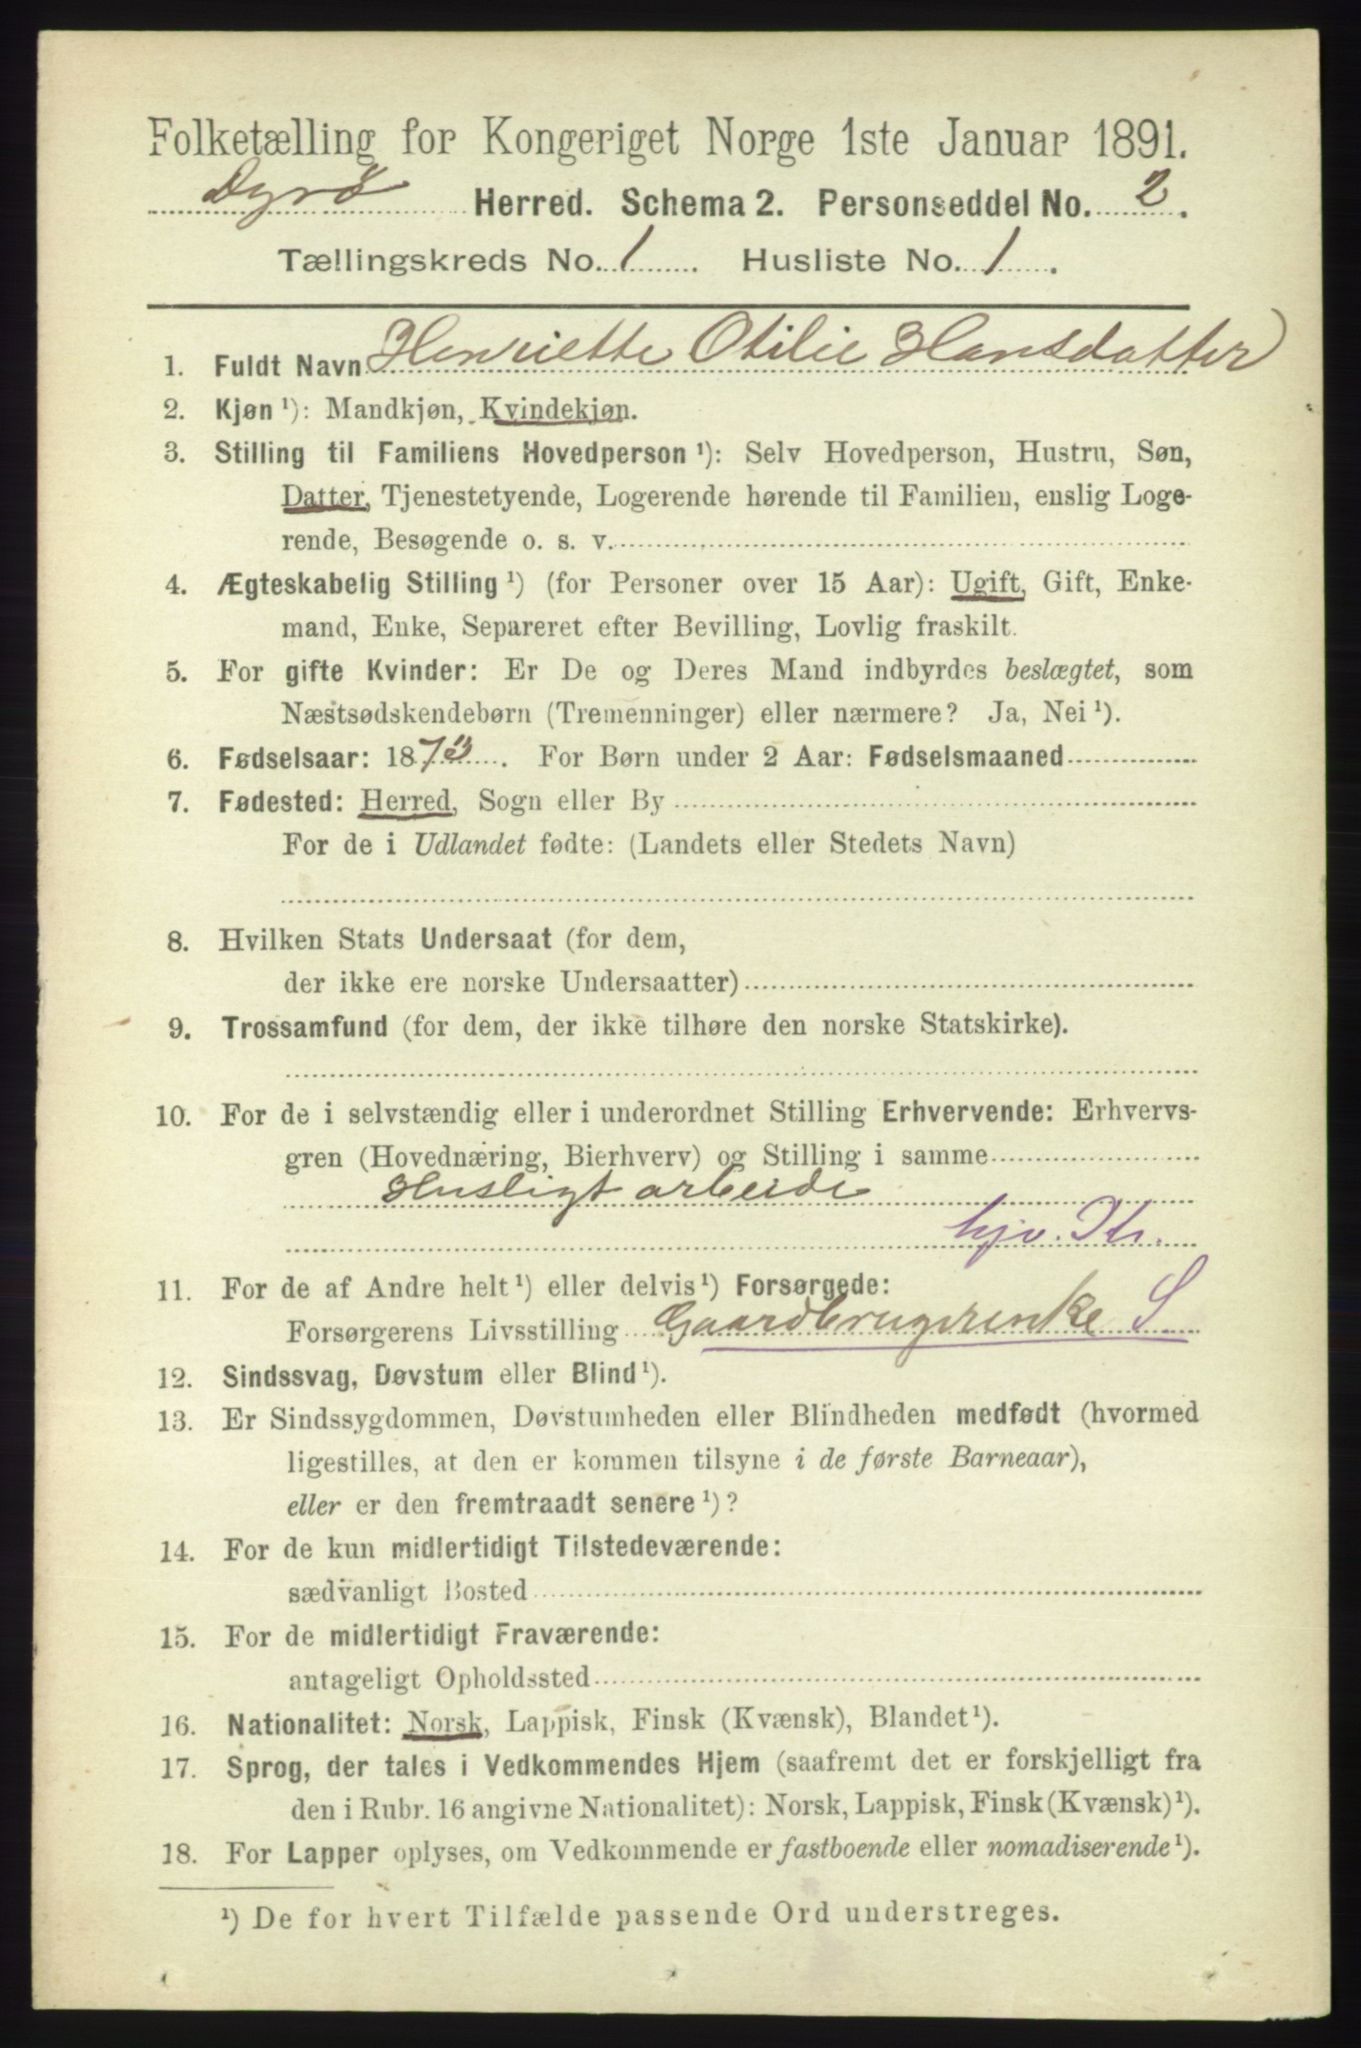 Folketælling for Kongeriget Norge 1ste Januar 1891.
Dyrø Herred. Schema 2. Personseddel No. 2.
Tællingskreds No. 1. Husliste No. 1.
1. Fuldt Navn Henriette Otilie Hansdatter
2. Kjøn ¹): Mandkjøn, Kvindekjøn.
3. Stilling til Familiens Hovedperson ¹): Selv Hovedperson, Hustru, Søn,
Datter, Tjenestetyende, Logerende hørende til Familien, enslig Loge-
rende, Besøgende o. s. v.
4. Ægteskabelig Stilling ¹) (for Personer over 15 Aar): Ugift, Gift, Enke-
mand, Enke, Separeret efter Bevilling, Lovlig fraskilt.
5. For gifte Kvinder: Er De og Deres Mand indbyrdes beslægtet, som
Næstsødskendebørn (Tremenninger) eller nærmere? Ja, Nei ¹).
6. Fødselsaar: 1873. For Børn under 2 Aar: Fødselsmaaned
7. Fødested: Herred, Sogn eller By
For de i Udlandet fødte: (Landets eller Stedets Navn)
8. Hvilken Stats Undersaat (for dem,
der ikke ere norske Undersaatter)
9. Trossamfund (for dem, der ikke tilhøre den norske Statskirke).
10. For de i selvstændig eller i underordnet Stilling Erhvervende: Erhvervs-
gren (Hovednæring, Bierhverv) og Stilling i samme
Husligt arbeide
hjv.
11. For de af Andre helt ¹) eller delvis ¹) Forsørgede:
Forsørgerens Livsstilling Gaardbrugerenke S
12. Sindssvag, Døvstum eller Blind ¹).
13. Er Sindssygdommen, Døvstumheden eller Blindheden medfødt (hvormed
ligestilles, at den er kommen tilsyne i de første Barneaar),
eller er den fremtraadt senere ¹)?
14. For de kun midlertidigt Tilstedeværende:
sædvanligt Bosted
15. For de midlertidigt Fraværende:
antageligt Opholdssted
16. Nationalitet: Norsk, Lappisk, Finsk (Kvænsk), Blandet ¹).
17. Sprog, der tales i Vedkommendes Hjem (saafremt det er forskjelligt fra
den i Rubr. 16 angivne Nationalitet): Norsk, Lappisk, Finsk (Kvænsk) ¹).
18. For Lapper oplyses, om Vedkommende er fastboende eller nomadiserende ¹).
¹) De for hvert Tilfælde passende Ord understreges.